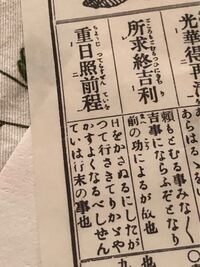 光華得再
あらはる
所求終吉利
頼もとむる事みな〱
吉事にならふぞとなり
前の功によるが故也
重日照前程
日をかさぬるにしたが
つて行さきてりかゞや
かすよくなるべしせん
ていは行末の事也